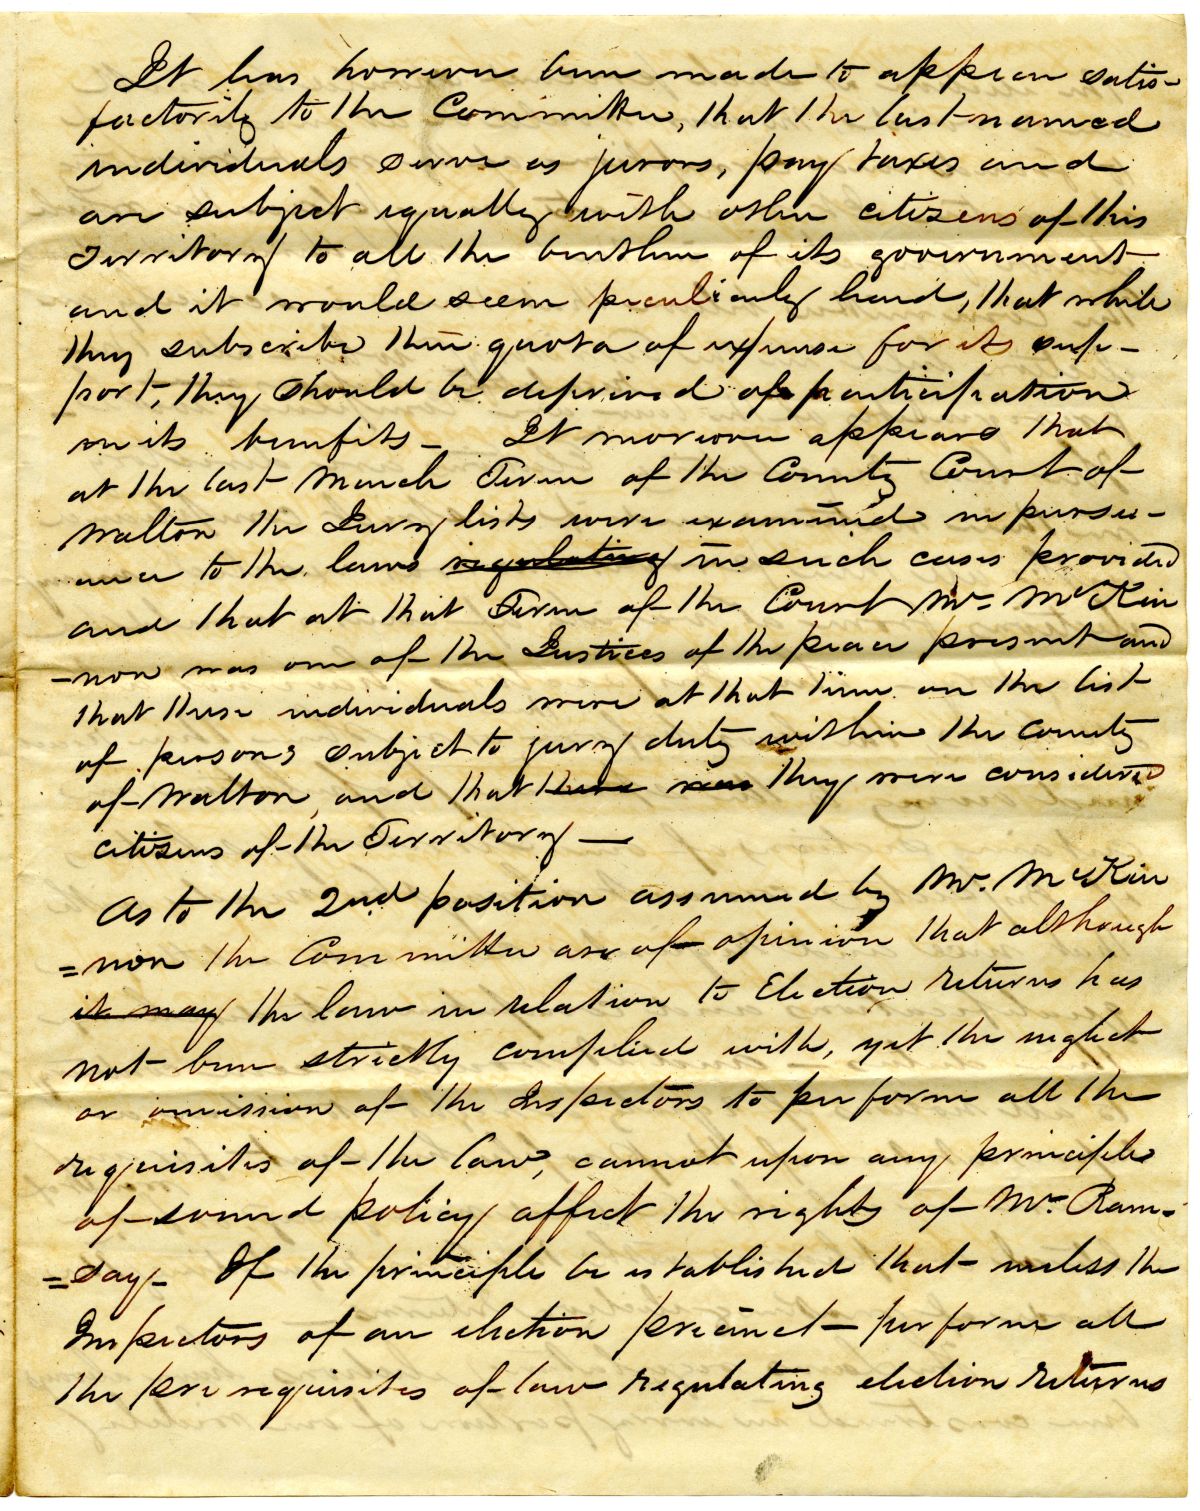 It has however been made to appear satis-
factorily to the Committee, that the last named
individuals serve as jurors, pay taxes and
are subject equally with other citizens of this
Territory to all the burthen of its government
and it would seem peculiarly hard, that while
they subscribe their quota of expense for its sup-
port, they should be deprived of participation
in its benefits - It moreover appears that
at the last March Term of the County Court of
Walton the Jury lists were examined in pursu-
ance to the laws regulating in such cases provided
and that at that Term of the Court Mr. McKin
-non was one of the Justices of the peace present and
that these individuals were at that time on the list
of persons subject to jury duty within the County
of Walton, and that there was they were considered
citizens of the Territory —
As to the 2nd position assumed by Mr. McKin
=non the Committee are of opinion that although
it may the law in relation to Election returns has
not been strictly complied with, yet the neglect
or omission of the Inspectors to perform all the
requisites of the law, cannot upon any principle
of sound policy affect the rights of Mr. Ram-
=say - If the principle be established that unless the
Inspectors of an election precinct - perform all
the prerequisites of law regulating election returns